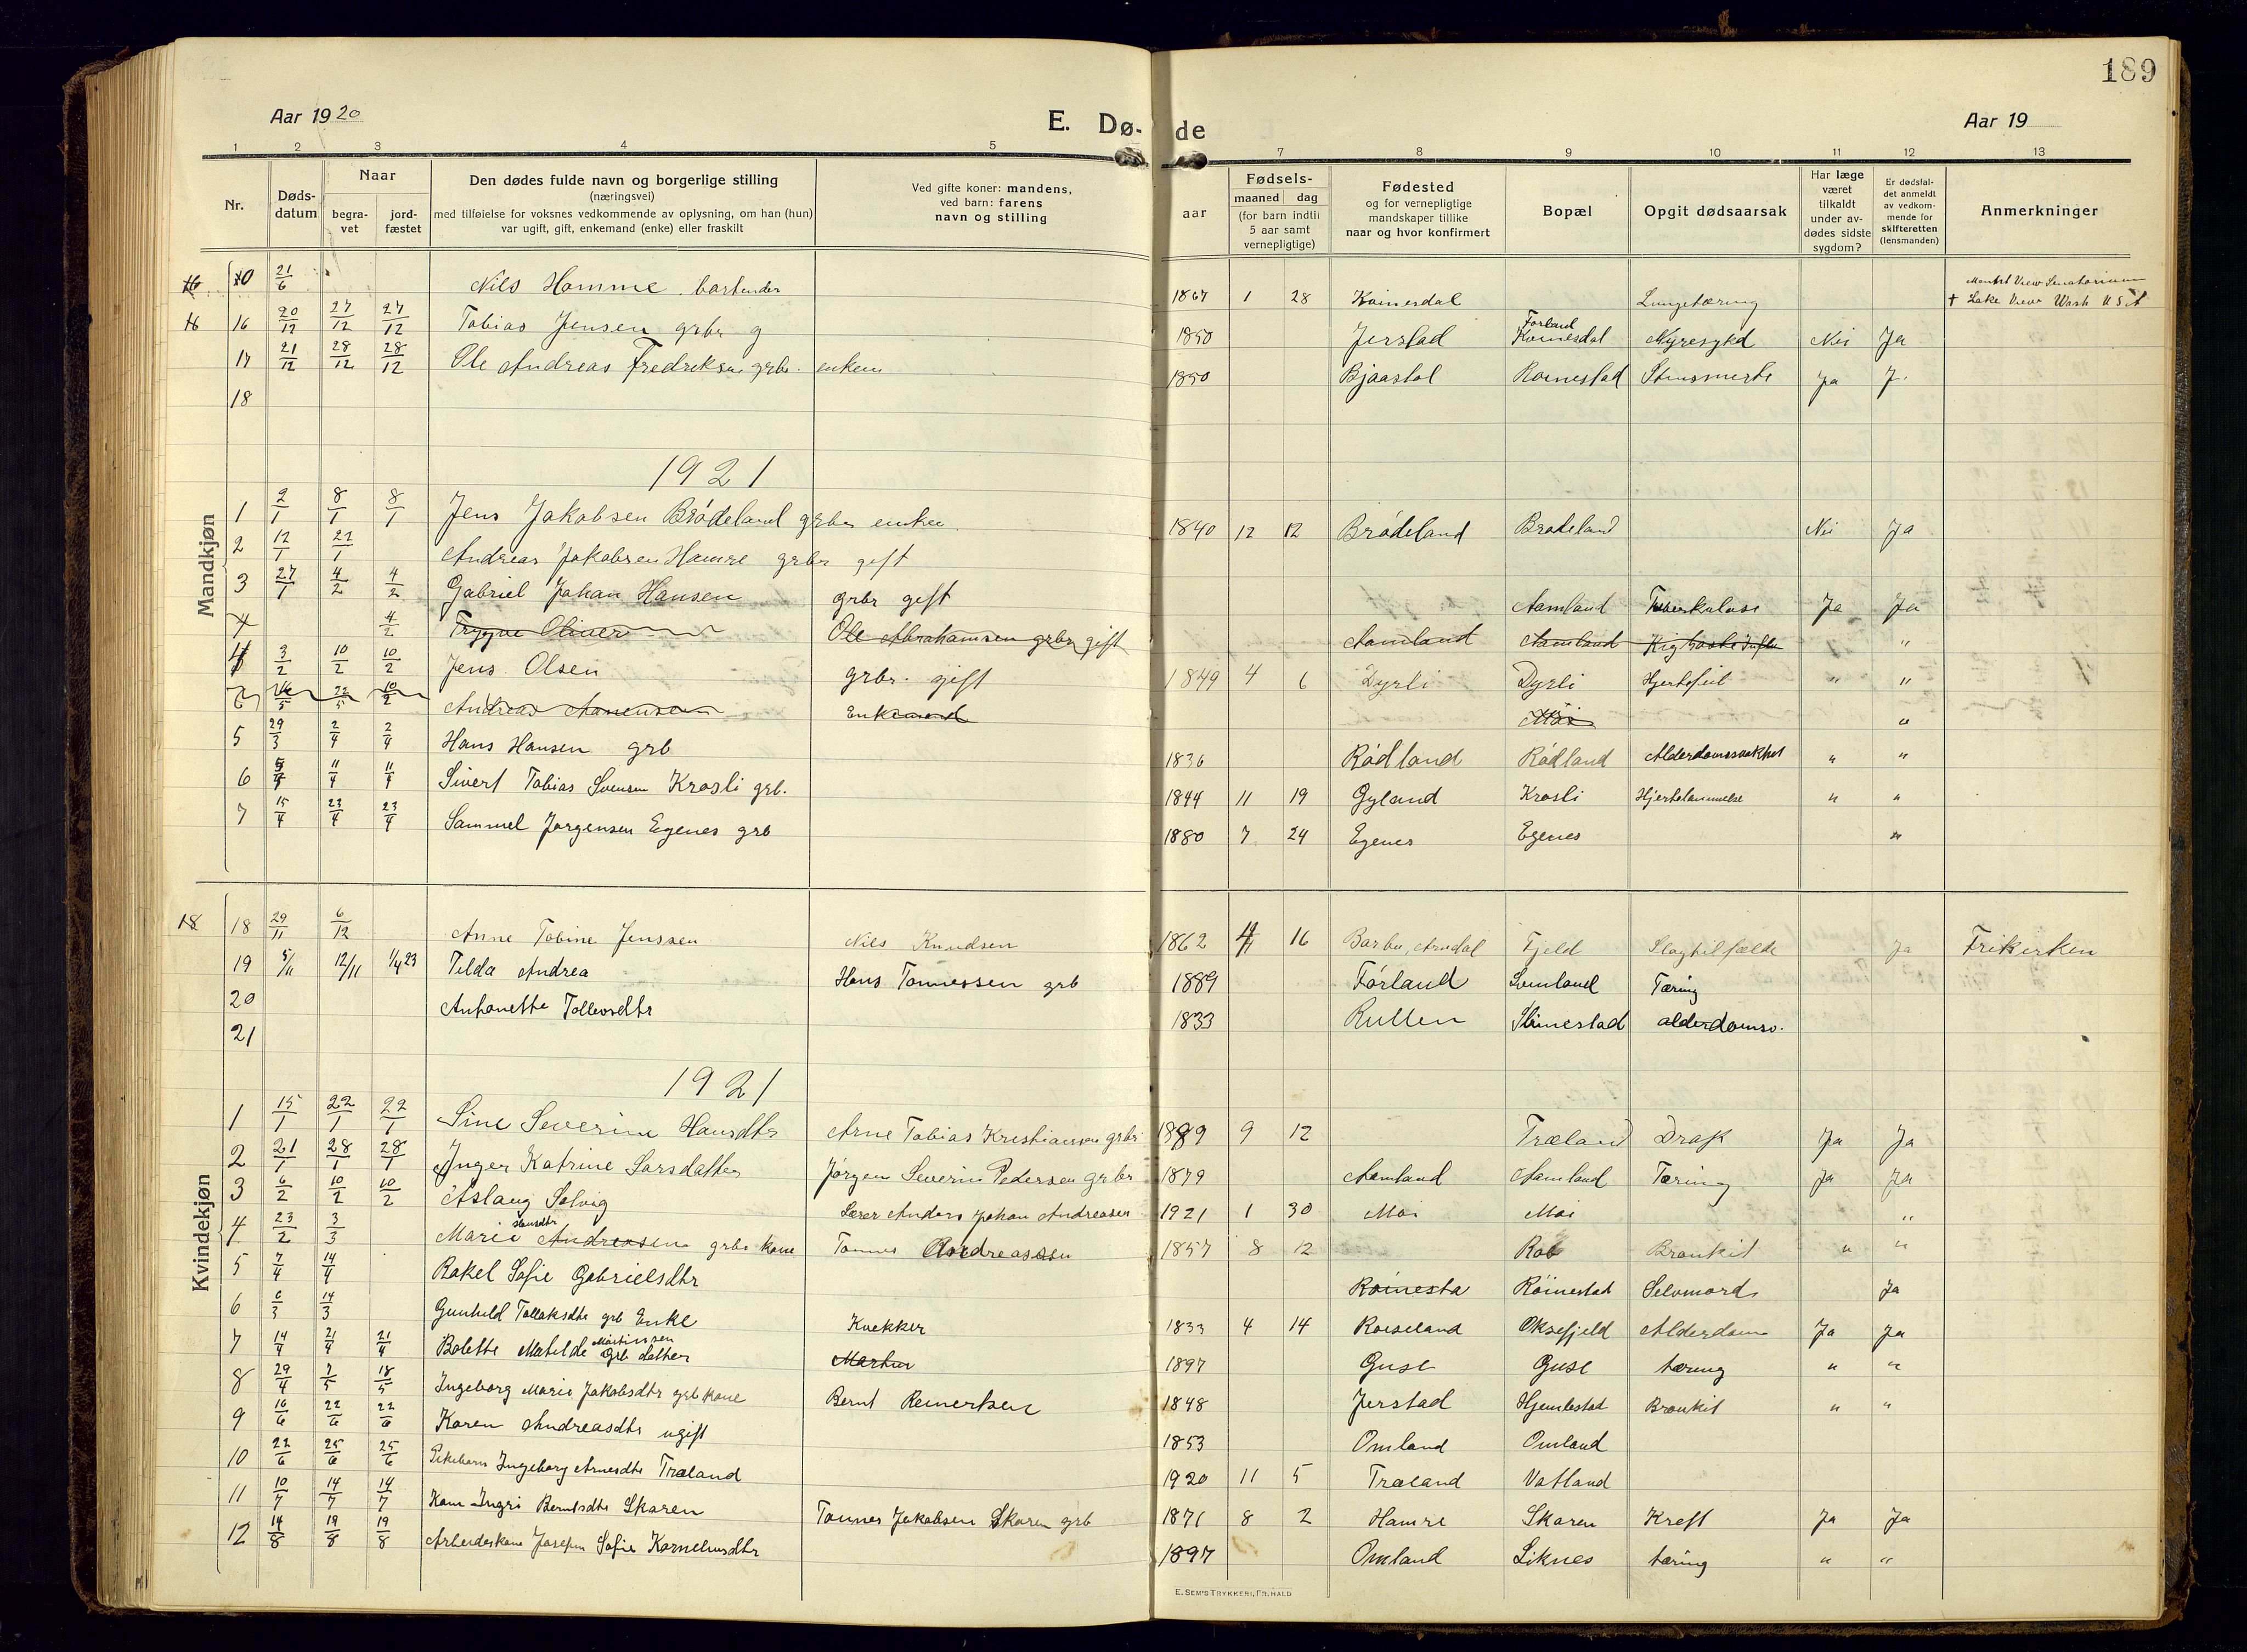 189
Aar 1920
E. Dø- de
Aar 19
1 2 3 4 5 7 8 9 10 11 12 13
Nr.
Døds-
datum
Naar
begra-
vet
jord-
fæstet
Den dødes fulde navn og borgerlige stilling
(næringsvei)
med tilføielse for voksnes vedkommende av oplysning, om han (hun)
var ugift, gift, enkemand (enke) eller fraskilt
Ved gifte koner: mandens,
ved barn: farens
navn og stilling
aar
Fødsels-
maaned dag
(for barn indtil
5 aar samt
vernepligtige)
Fødested
og for vernepligtige
mandskaper tillike
naar og hvor konfirmert
Bopæl
Opgit dødsaarsak
Har læge
været
tilkaldt
under av-
dødes sidste
sygdom?
Er dødsfal-
det anmeldt
av vedkom-
mende for
skifteretten
(lensmanden)
Anmerkninger
Mandkjøn
16 10 21/6 Nils Homme bartender 1867 1 28 Kvinesdal Lungetæring
† Lake View Wash U S A
16 16 20/12 27/12 27/12 Tobias Jensen grbr g 1850 Jerstad Forland Kvinesdal Nyresykd Nei Ja
17 21/12 28/12 28/12 Ole Andreas Fredriksen grbr. enkem 1850 Bjaastøl Roinestad Ja J.
18
1921
1 2/1 8/1 8/1 Jens Jakobsen Brådeland grbr enkem. 1840 12 12 Brådeland Brådeland Nei Ja
2 12/1 21/1 Andreas Jakobsen Hamre grbr gift
3 27/1 4/2 4/2 Gabriel Johan Hansen grbr gift Aamland Tuberkulose Ja Ja
4 4/2 Trygve Oliver Ole Abrahamsen grbr gift Aamland Aamland Kighoste Influ "
4 3/2 10/2 10/2 Jens Olsen grbr. gift 1849 4 6 Dyrli Dyrli Hjertefeil " "
10/2 Andreas Aanensen Enkemand Moi "
5 29/3 2/4 2/4 Hans Hansen grb 1836 Rådland Rådland Alderdomssvakhet " "
6 11/4 11/4 Sivert Tobias Svensen Krosli grb. 1844 11 19 Gyland Krosli Hjertelammelse " "
7 15/4 23/4 23/4 Sammel Jørgensen Egenes grb 1880 7 24 Egenes Egenes "
Kvindekjøn
18 18 29/11 6/12 Anne Tobine Jenssen Nils Knudsen 1862 16 Barbu, Arndal Fjeld Slagtilfælde Ja Frikirken
19 5/11 12/11 1/4 23 Tilda Andrea Hans Tønnessen grb 1889 Førland Svinland Tæring
20 Antonette Tollevsdtr 1833 Rullen Slimestad alderdomsv.
21
1921
1 15/1 22/1 22/1 Sine Severine Hansdtr Arne Tobias Kristiansen grbr 1889 9 12 Træland Drap Ja Ja
2 21/1 28/1 28/1 Inger Katrine Larsdatter Jörgen Severin Pedersen grbr 1879 Aamland Aamland Tæring Ja Ja
3 6/2 10/2 10/2 Aslaug Solvig Lærer Anders Johan Andreasen 1921 1 30 Moi Moi "
4 23/2 3/3 Marie Hansdtr Andreasen grbr kone Tønnes Andreassen 1857 8 12 Bronkit " "
5 7/4 14/4 Rakel Sofie Gabrielsdtr Roinesta Röinestad Selvmord Ja
6 6/3 14/3 Gunhild Tollaksdtr grb Enke Kvekker 1833 4 14 Roiseland Oksefjeld Alderdom Ja Ja
7 14/4 21/4 21/4 Bolette Matilde Martinssen grb datter Martin 1897 Guse Guse tæring " "
8 29/4 18/5 Ingeborg Marie Jakobsdtr grb kone Bernt Reinertsen 1848 Jerstad Hjemlestad Bronkit " "
9 16/6 22/6 22/6 Karen Andreasdtr ugift 1853 Omland Omland
10 22/6 25/6 25/6 Pikebarn Ingeborg Arnesdtr Træland 1920 11 5 Træland Vatland
11 10/7 14/7 14/7 Kone Ingri Berntsdtr Skaren Tønnes Jakobsen Skaren grb 1871 8 2 Hamre Skaren Kreft Ja Ja
12 14/8 19/8 19/8 Arbeiderkone Josefin Sofie Kornelinsdtr 1897 Omland Liknes tæring " "
E. SEM'S TRYKKERI, FR.HALD